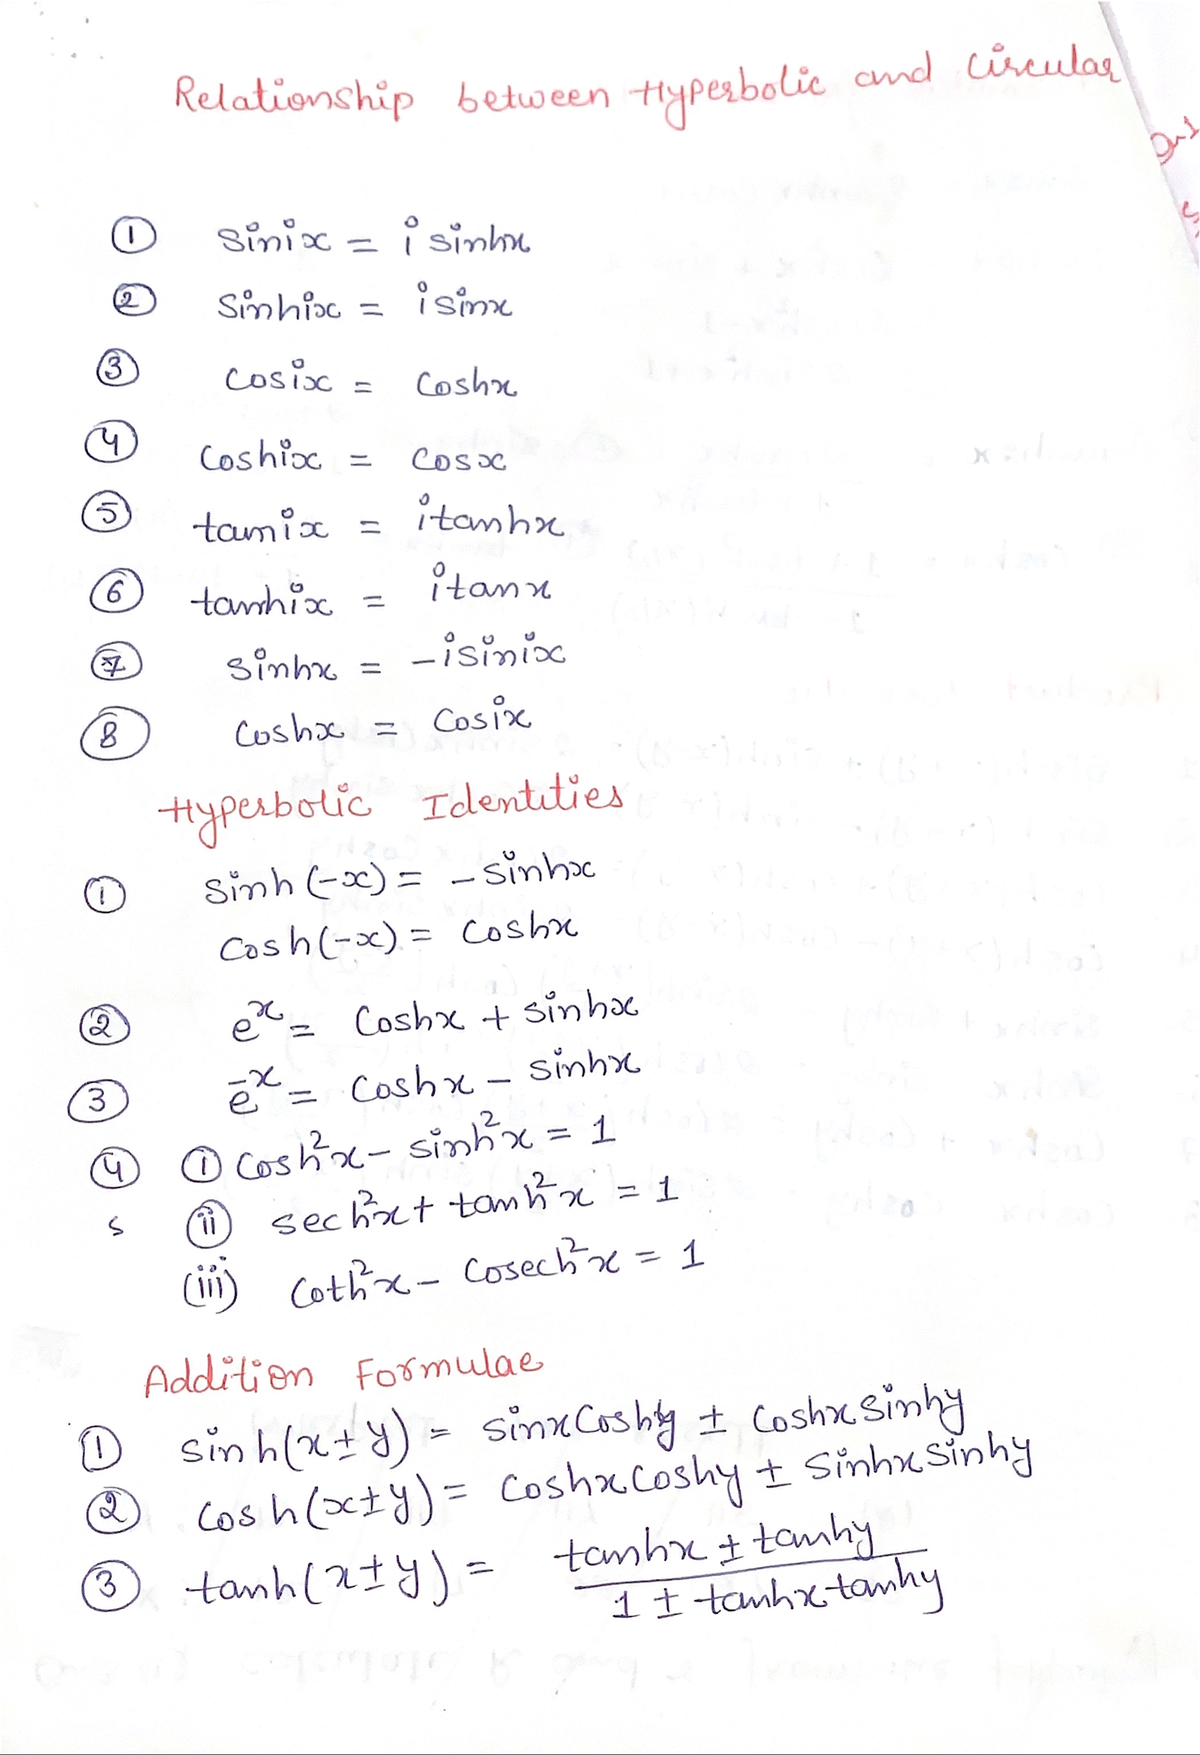 Relationship between Hyperbolic and Circular
① sinix = i sinhx
② sinhix = i sinx
③ cosix = coshx
④ coshix = cosx
⑤ tanix = itanhx
⑥ tanhix = itanx
⑦ sinhx = -isinix
⑧ coshx = cosix
Hyperbolic Identities
① sinh(-x) = -sinhx
cosh(-x) = coshx
② eˣ = coshx + sinhx
③ e⁻ˣ = coshx - sinhx
④ ① cosh²x - sinh²x = 1
s ⅱ sech²x + tanh²x = 1
(iii) coth²x - cosech²x = 1
Addition Formulae
① sinh(x±y) = sinx coshy ± coshx sinhy
② cosh(x±y) = coshx coshy ± sinhx sinhy
③ tanh(x±y) = tanhx ± tanhy
1 ± tanhx tanhy